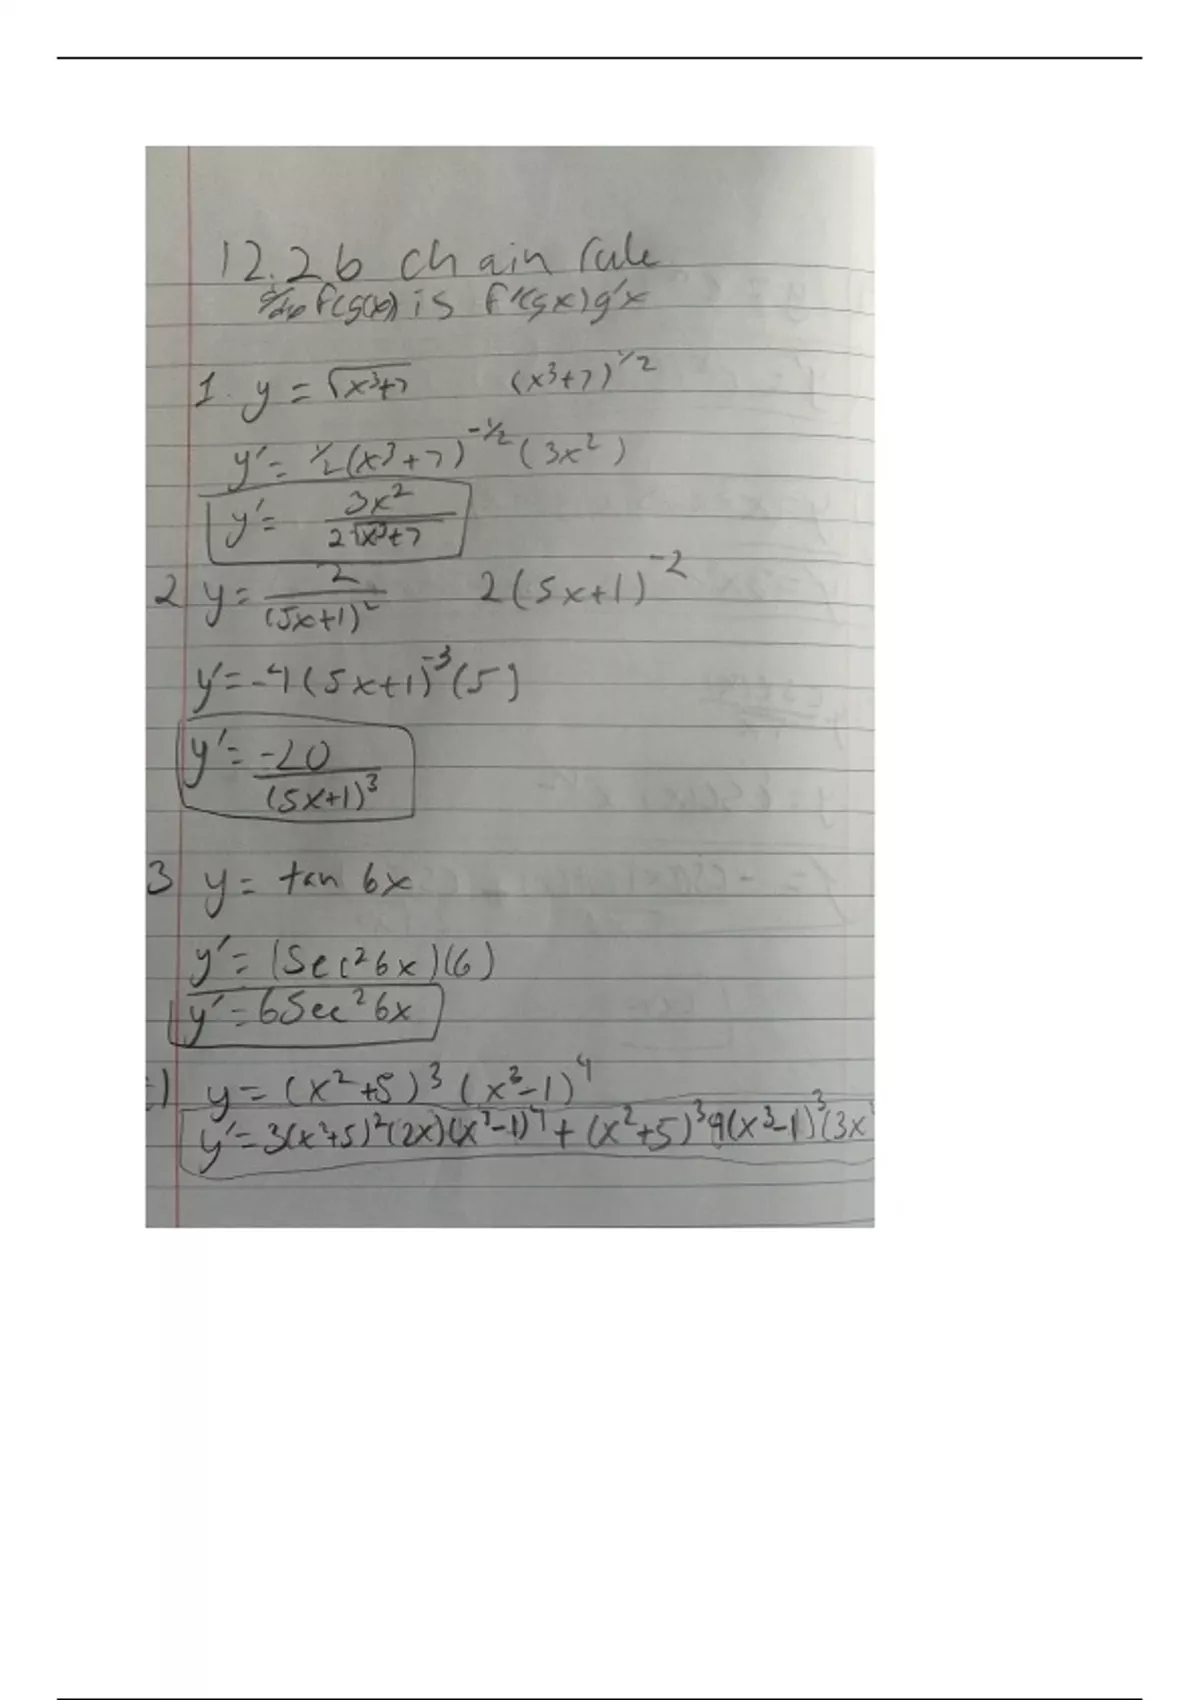 12.2b chain rule
d/dx f(g(x)) is f'(gx)g'x
1. y = √x³+7 (x³+7)^1/2
y' = 1/2(x³+7)^-1/2 (3x²)
y' = 3x² / 2√x³+7
2 y = 2 / (5x+1)² 2(5x+1)^-2
y' = -4(5x+1)^-3 (5)
y' = -20 / (5x+1)³
3 y = tan 6x
y' = (Sec²6x)(6)
y' = 6Sec²6x
y = (x²+5)³ (x³-1)⁴
y' = 3(x²+5)²(2x)(x³-1)⁴ + (x²+5)³4(x³-1)³(3x